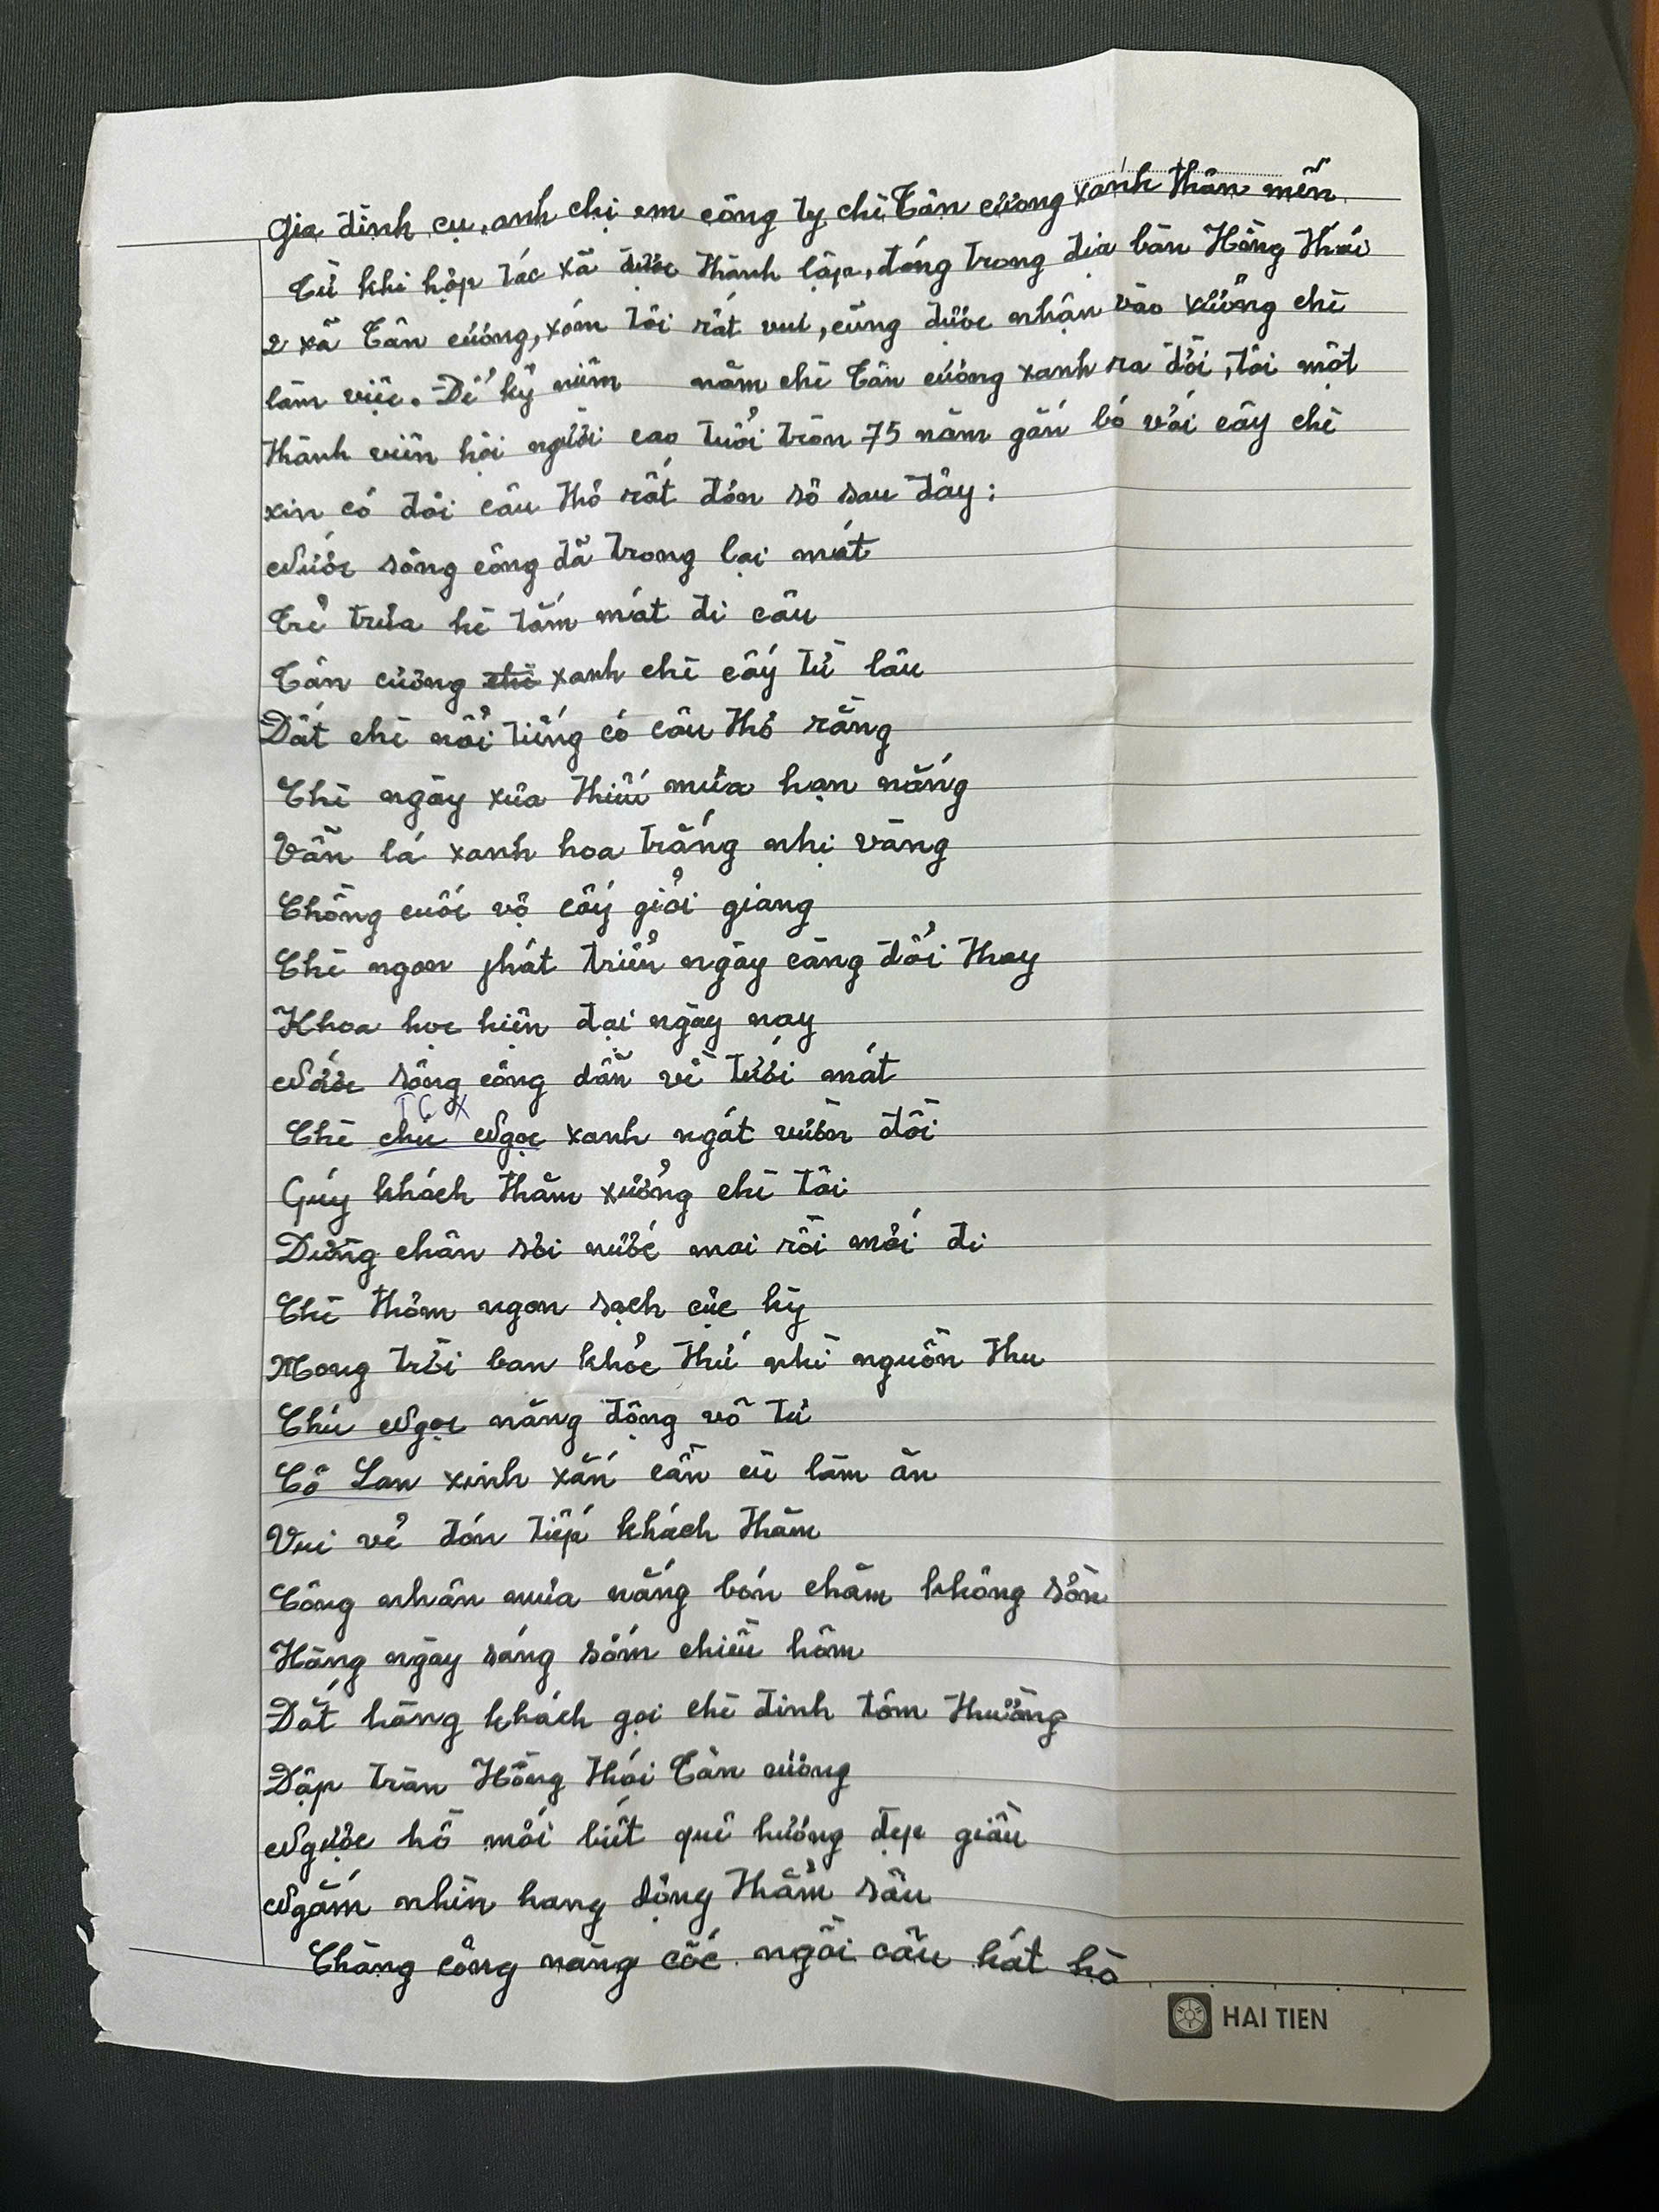 Gia đình cụ, anh chị em công ty chè Tân cương xanh thân mến
Từ khi hợp tác xã được thành lập, đóng trong địa bàn Hồng Thái
2 xã Tân cương, xóm tôi rất vui, cũng được nhận vào xưởng chè
làm việc. Để kỷ niệm năm chè Tân cương xanh ra đời, tôi một
thành viên hội người cao tuổi tròn 75 năm gắn bó với cây chè
xin có đôi câu thơ rất đơn sơ sau đây:
Nước sông công đã trong lại mát
Trẻ trưa hè tắm mát đi câu
Tân cương chè xanh chè cấy từ lâu
Đất chè nổi tiếng có câu thơ rằng
Chè ngày xưa thiếu mưa hạn nắng
Vẫn lá xanh hoa trắng nhị vàng
Chồng cuốc vợ cấy giỏi giang
Chè ngon phát triển ngày càng đổi thay
Khoa học hiện đại ngày nay
Nước sông công dẫn về tưới mát
TCX
Chè chú Ngọc xanh ngát vườn đồi
Qúy khách thăm xưởng chè tôi
Dừng chân sơi nước mai rồi mới đi
Chè thơm ngon sạch cực kỳ
Mong trời ban khỏe thứ nhì nguồn thu
Chú Ngọc năng động vô tư
Cô Lan xinh xắn cần cù làm ăn
Vui vẻ đón tiếp khách thăm
Công nhân mưa nắng bón chăm không sờn
Hàng ngày sáng sớm chiều hôm
Đặt hàng khách gọi chè đinh tôm thường
Đập tràn Hồng Thái Tân cương
Ngược hồ mới biết quê hương đẹp giầu
Ngắm nhìn hang động thẳm sâu
Chàng công nàng cốc ngồi câu hát hò
HAI TIEN